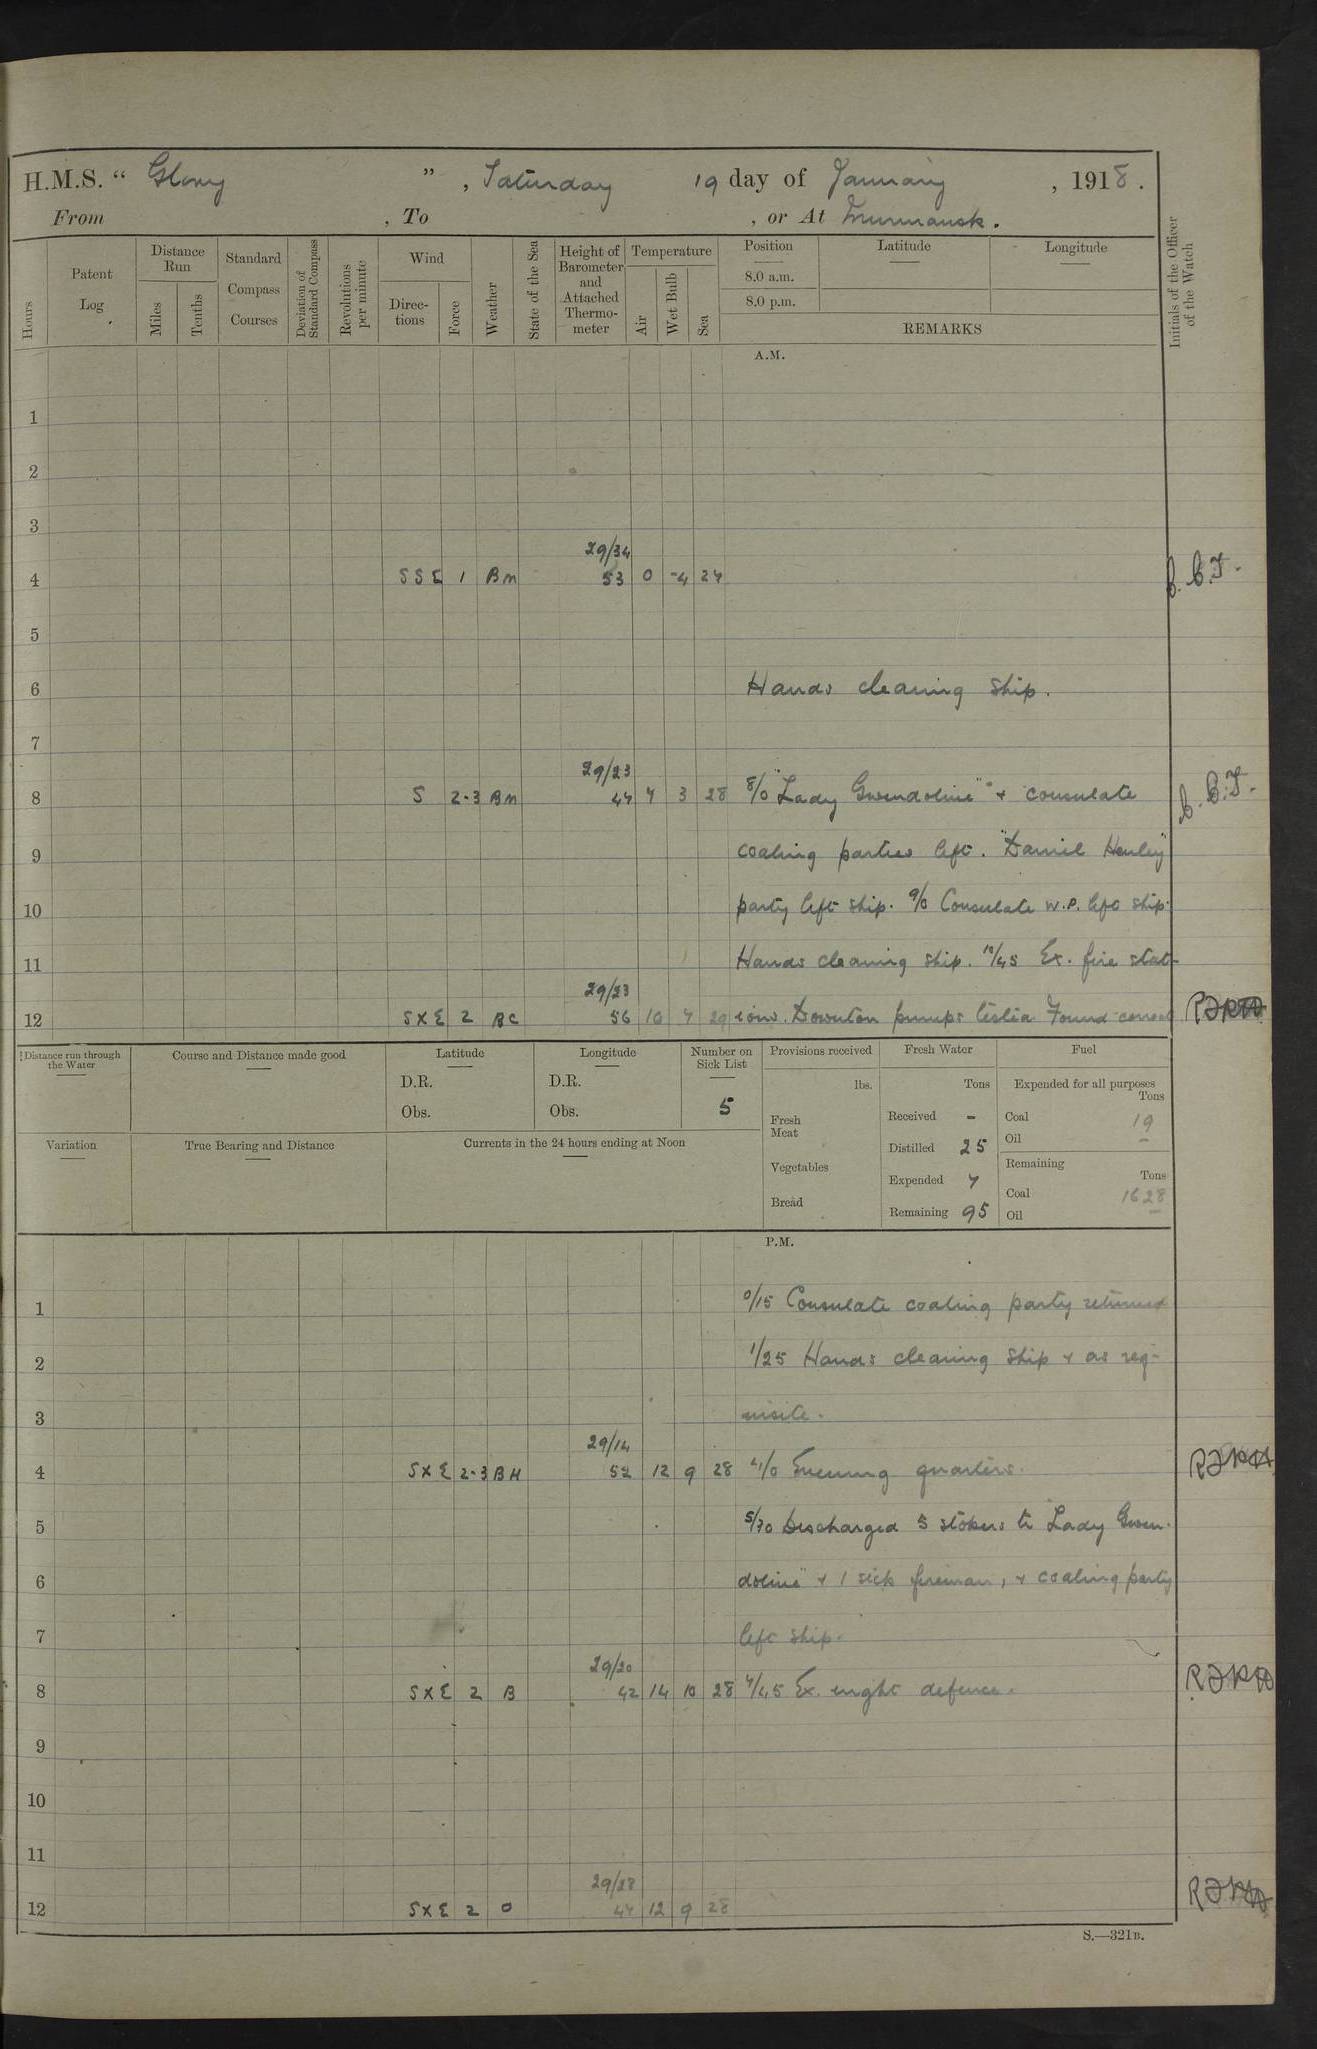 H.M.S. “ Glory ” , Saturday 19 day of January , 1918 .
From , To , or At Murmansk .
Hours
Patent Log
Distance Run
Miles
Tenths
Standard Compass Courses
Deviation of Standard Compass
Revolutions per minute
Wind
Direc-tions
Force
Weather
State of the Sea
Height of Barometer and Attached Thermo-meter
Temperature
Air
Wet Bulb
Sea
Position
8.0 a.m.
8.0 p.m.
Latitude
Longitude
REMARKS
Initials of the Officer of the Watch
A.M.
1
2
3
29/34
4 SSE 1 Bm 53 0 -4 27
5
6 Hands cleaning ship.
7
29/23
8 S 2-3 Bm 47 7 3 28 8/0 "Lady Gwendoline" + consulate
9 coaling parties left. "Daniel Henley"
10 party left ship. 9/0 Consulate W.P. left ship.
11 Hands cleaning ship. 10/45 Ex. fire stat-
29/23
12 SXE 2 BC 56 10 7 29 ions. Downton pumps tested Found correct
Distance run through the Water
Course and Distance made good
Latitude
D.R.
Obs.
Longitude
D.R.
Obs.
Number on Sick List
5
Provisions received
lbs.
Fresh Meat
Vegetables
Bread
Fresh Water
Tons
Received -
Distilled 25
Expended 7
Remaining 95
Fuel
Expended for all purposes
Tons
Coal 19
Oil -
Remaining
Tons
Coal 1628
Oil -
Variation
True Bearing and Distance
Currents in the 24 hours ending at Noon
P.M.
1 0/15 Consulate coaling party returned
2 1/25 Hands cleaning ship + as req-
3 uisite.
29/14
4 SXE 2-3 BM 52 12 9 28 4/0 Evening quarters.
5 5/30 Discharged 5 stokers to "Lady Gwen-
6 doline" + 1 sick fireman, + coaling party
7 left ship.
29/20
8 SXE 2 B 42 14 10 28 7/45 Ex. night defence.
9
10
11
29/28
12 SXE 2 O 47 12 9 28
S.—321B.